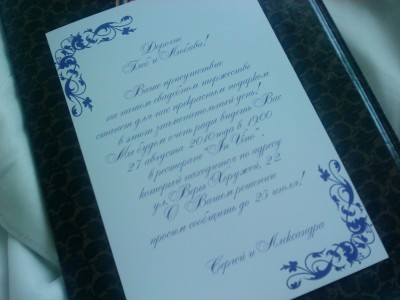 Дорогие
Глеб и Любовь!
Ваше присутствие
на нашем свадебном торжестве
станет для нас прекрасным подарком
в этот знаменательный день!
Мы будем очень рады видеть Вас
27 августа 2010 года в 19.00
в ресторане "In Vino",
который находится по адресу
ул. Веры Хоружей, 22.
О Вашем решении
просим сообщить до 25 июля!
Сергей и Александра